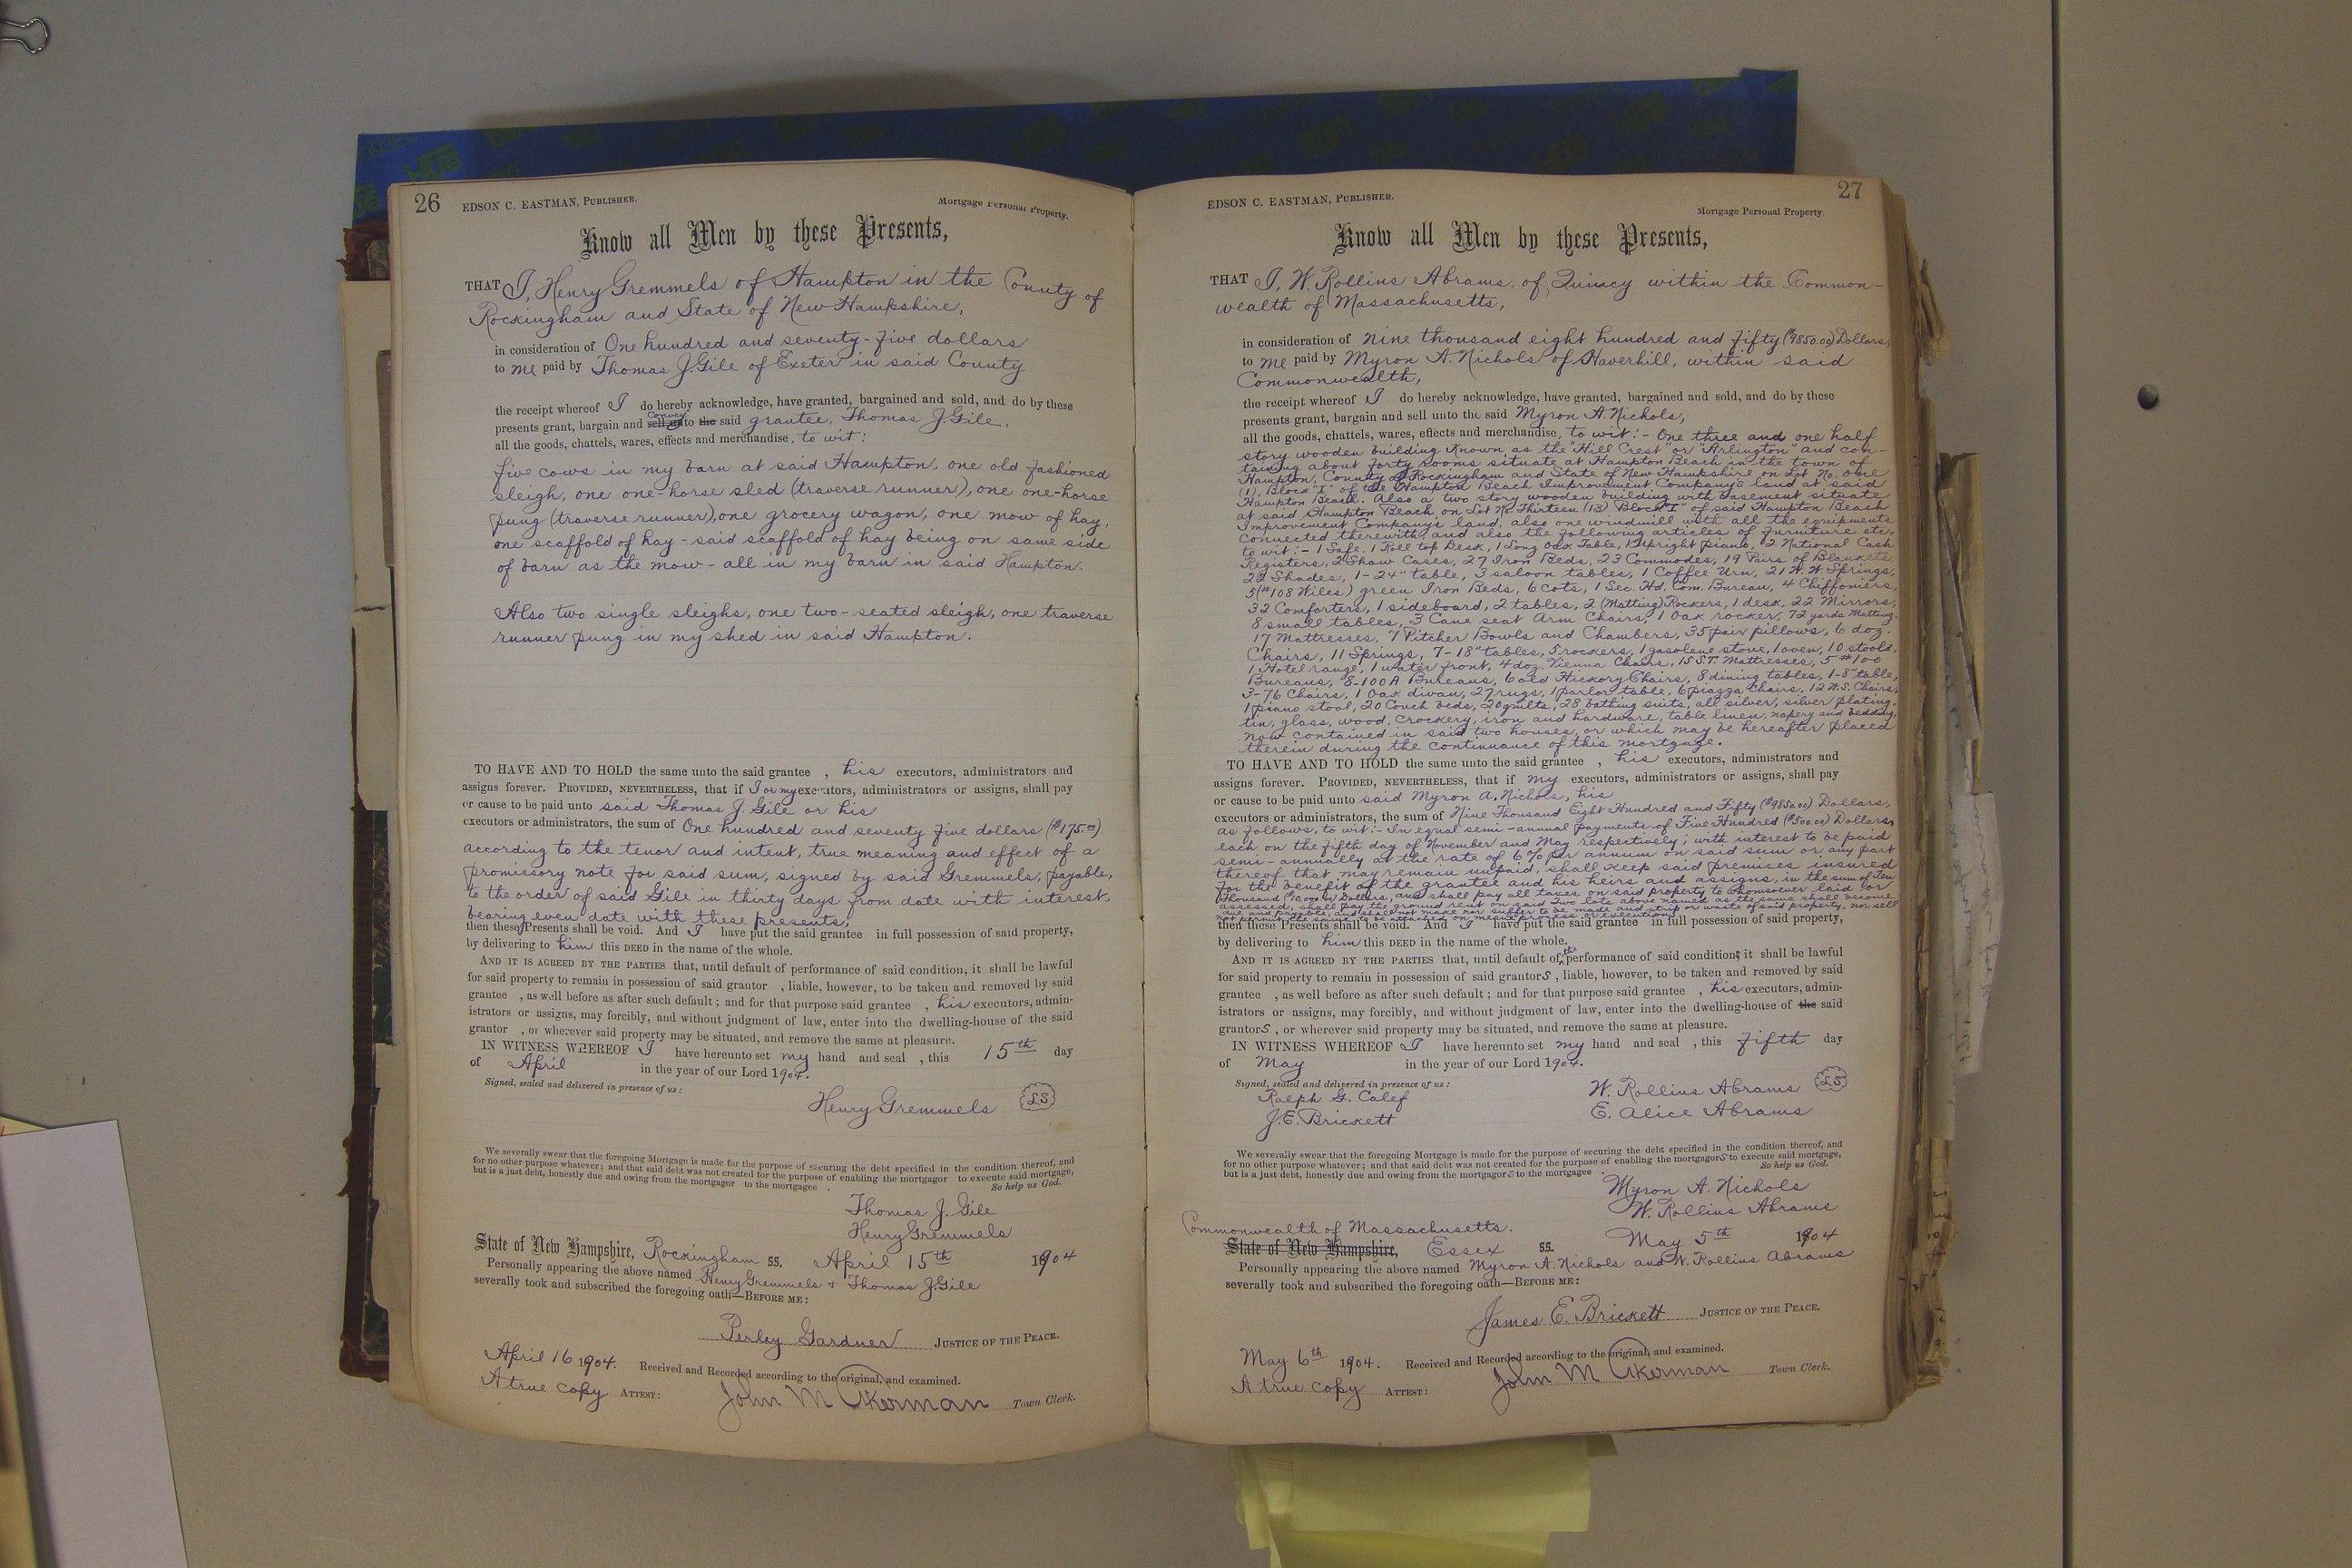 26 EDSON C. EASTMAN, PUBLISHER. Mortgage Personal Property.
Know all Men by these Presents,
THAT I, Henry Gremmels of Hampton in the County of
Rockingham and State of New Hampshire,
in consideration of One hundred and seventy-five dollars
to me paid by Thomas J. Gile of Exeter in said County
the receipt whereof I do hereby acknowledge, have granted, bargained and sold, and do by these
presents grant, bargain and sell unto Convey the said grantee, Thomas J. Gile,
all the goods, chattels, wares, effects and merchandise, to wit:
five cows in my barn at said Hampton, one old fashioned
sleigh, one one-horse sled (traverse runner), one one-horse
pung (traverse runner), one grocery wagon, one mow of hay,
one scaffold of hay - said scaffold of hay being on same side
of barn as the mow - all in my barn in said Hampton.
Also two single sleighs, one two-seated sleigh, one traverse
runner pung in my shed in said Hampton.
TO HAVE AND TO HOLD the same unto the said grantee , his executors, administrators and
assigns forever. PROVIDED, NEVERTHELESS, that if I or my executors, administrators or assigns, shall pay
or cause to be paid unto said Thomas J. Gile or his
executors or administrators, the sum of One hundred and seventy five dollars ($175.00)
according to the tenor and intent, true meaning and effect of a
promissory note for said sum, signed by said Gremmels, payable,
to the order of said Gile in thirty days from date with interest,
bearing even date with these presents,
then these Presents shall be void. And I have put the said grantee in full possession of said property,
by delivering to him this DEED in the name of the whole.
AND IT IS AGREED BY THE PARTIES that, until default of performance of said condition, it shall be lawful
for said property to remain in possession of said grantor , liable, however, to be taken and removed by said
grantee , as well before as after such default; and for that purpose said grantee , his executors, admin-
istrators or assigns, may forcibly, and without judgment of law, enter into the dwelling-house of the said
grantor , or wherever said property may be situated, and remove the same at pleasure.
IN WITNESS WHEREOF I have hereunto set my hand and seal , this 15th day
of April in the year of our Lord 1904.
Signed, sealed and delivered in presence of us:
Henry Gremmels LS
We severally swear that the foregoing Mortgage is made for the purpose of securing the debt specified in the condition thereof, and
for no other purpose whatever; and that said debt was not created for the purpose of enabling the mortgagor to execute said mortgage,
but is a just debt, honestly due and owing from the mortgagor to the mortgagee . So help us God.
Thomas J. Gile
Henry Gremmels
State of New Hampshire, Rockingham SS. April 15th 1904
Personally appearing the above named Henry Gremmels + Thomas J. Gile
severally took and subscribed the foregoing oath—BEFORE ME:
Perley Gardner JUSTICE OF THE PEACE.
April 16 1904. Received and Recorded according to the original, and examined.
A true copy ATTEST: John M Akerman Town Clerk.
27 EDSON C. EASTMAN, PUBLISHER. Mortgage Personal Property.
Know all Men by these Presents,
THAT I, W. Rollins Abrams, of Quincy within the Common-
wealth of Massachusetts,
in consideration of Nine thousand eight hundred and fifty ($9850.00) Dollars,
to me paid by Myron A. Nichols of Haverhill, within said
Commonwealth,
the receipt whereof I do hereby acknowledge, have granted, bargained and sold, and do by these
presents grant, bargain and sell unto the said Myron A. Nichols,
all the goods, chattels, wares, effects and merchandise, to wit:- One three and one half
story wooden building known as the "Hill Crest" or "Arlington" and con-
taining about forty rooms situate at Hampton Beach in the town of
Hampton, County of Rockingham and State of New Hampshire on Lot No. one
(1), Block "I" of the Hampton Beach Improvement Company's land at said
Hampton Beach. Also a two story wooden building with basement situate
at said Hampton Beach on Lot No. Thirteen (13) Block "I" of said Hampton Beach
Improvement Company's land, also one windmill with all the equipments
connected therewith, and also the following articles of furniture etc.,
to wit:- 1 Safe. 1 Roll top Desk, 1 Long Oak Table, 1 Upright piano, 2 National Cash
Registers, 2 Show Cases, 27 Iron Beds, 23 Commodes, 19 Pairs of Blankets,
22 Shades, 1-24" table, 3 saloon tables, 1 Coffee Urn, 21 W.W. Springs,
5 (#108 Wiles) green Iron Beds, 6 cots, 1 Sec. Hd. Com. Bureau, 4 Chiffoniers,
32 Comforters, 1 sideboard, 2 tables, 2 (Matting) Rockers, 1 desk, 22 Mirrors,
8 small tables, 3 Cane seat Arm Chairs, 1 Oak rocker, 72 yards Matting.
17 Mattresses, 7 Pitcher Bowls and Chambers, 35 pair pillows, 6 doz.
Chairs, 11 Springs, 7-18" tables, 5 rockers, 1 gasolene stove, 1 oven, 10 stools,
1 Hotel range, 1 water front, 4 doz. Vienna Chairs, 15 S.T. Mattresses, 5 #100
Bureaus, 8-100A Bureaus, 6 old Hickory Chairs, 8 dining tables, 1-8" table,
3-76 Chairs, 1 Oak divan, 27 rugs, 1 parlor table, 6 piazza chairs, 12 W.S. Chairs,
1 piano stool, 20 Couch beds, 20 quilts, 28 bathing suits, all silver, silver plating,
tin, glass, wood, crockery, iron and hardware, table linen, napery and bedding,
now contained in said two houses, or which may be hereafter placed
therein during the continuance of this mortgage.
TO HAVE AND TO HOLD the same unto the said grantee , his executors, administrators and
assigns forever. PROVIDED, NEVERTHELESS, that if my executors, administrators or assigns, shall pay
or cause to be paid unto said Myron A. Nichols, his
executors or administrators, the sum of Nine Thousand Eight Hundred and Fifty ($9850.00) Dollars,
as follows, to wit:- In equal semi-annual payments of Five Hundred ($500.00) Dollars
each on the fifth day of November and May respectively; with interest to be paid
semi-annually at the rate of 6% per annum on said sum or any part
thereof that may remain unpaid, shall keep said premises insured
for the benefit of the grantee and his heirs and assigns, in the sum of Ten
Thousand ($10,000.00) Dollars, and shall pay all taxes on said property to whomsoever laid or
assessed, shall pay the ground rent on said two lots above named as the same shall become
due and payable, and shall not make nor suffer to be made any strip or waste of said property, nor sell
nor permit the same to be attached on mesne process or execution,
then these Presents shall be void. And I have put the said grantee in full possession of said property,
by delivering to him this DEED in the name of the whole.
AND IT IS AGREED BY THE PARTIES that, until default of the performance of said condition, it shall be lawful
for said property to remain in possession of said grantors , liable, however, to be taken and removed by said
grantee , as well before as after such default; and for that purpose said grantee , his executors, admin-
istrators or assigns, may forcibly, and without judgment of law, enter into the dwelling-house of the said
grantors , or wherever said property may be situated, and remove the same at pleasure.
IN WITNESS WHEREOF I have hereunto set my hand and seal , this fifth day
of May in the year of our Lord 1904.
Signed, sealed and delivered in presence of us:
Ralph G. Calef W. Rollins Abrams LS
J. E. Brickett E. Alice Abrams
We severally swear that the foregoing Mortgage is made for the purpose of securing the debt specified in the condition thereof, and
for no other purpose whatever; and that said debt was not created for the purpose of enabling the mortgagors to execute said mortgage,
but is a just debt, honestly due and owing from the mortgagors to the mortgagee . So help us God.
Myron A. Nichols
W. Rollins Abrams
Commonwealth of Massachusetts.
State of New Hampshire, Essex SS. May 5th 1904
Personally appearing the above named Myron A. Nichols and W. Rollins Abrams
severally took and subscribed the foregoing oath—BEFORE ME:
James E. Brickett JUSTICE OF THE PEACE.
May 6th 1904. Received and Recorded according to the original, and examined.
A true copy ATTEST: John M Akerman Town Clerk.